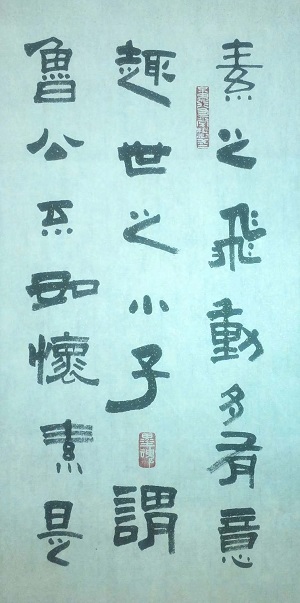 素之飛動多有意
趣世之小子謂
魯公不如懷素是